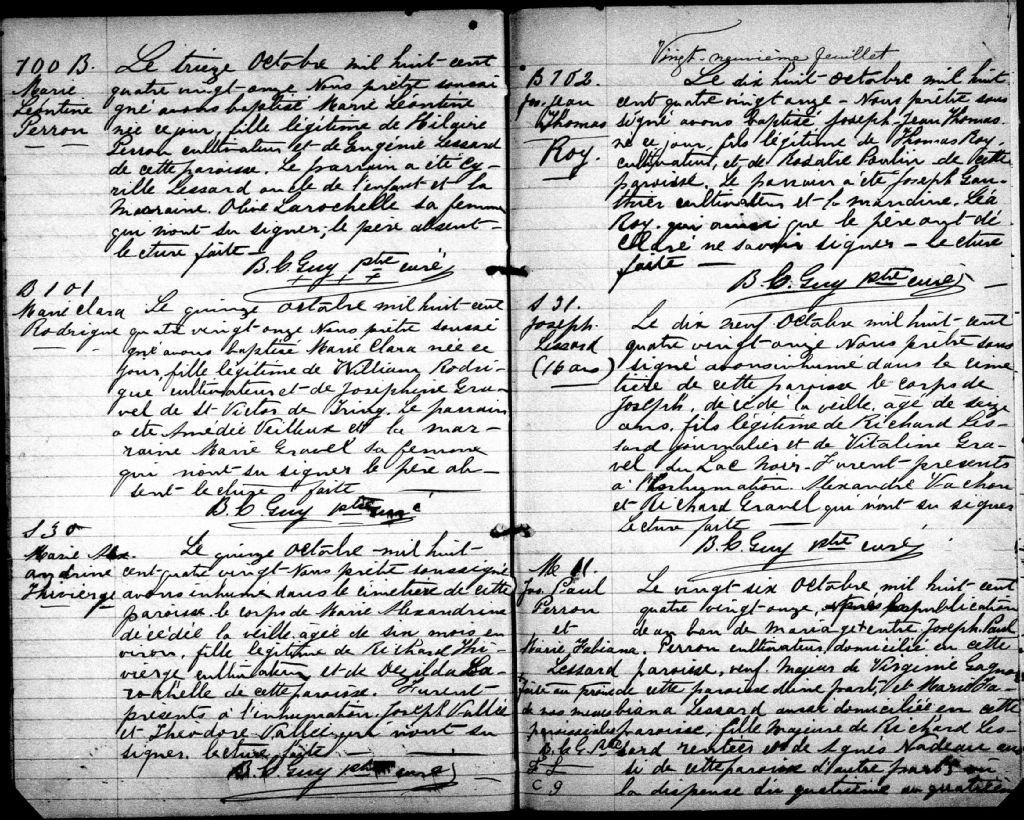 100 B.
Marie
Léontine
Perron
Le treize Octobre mil huit-cent
quatre vingt-onze Nous prêtre soussi
gné avons baptisé Marie Léontine
née ce jour, fille légitime de Hilaire
Perron cultivateur et de Eugénie Lessard
de cette paroisse. Le parrain a été Cy-
rille Lessard oncle de l'enfant et la
marraine. Olive Larochelle sa femme
qui n'ont su signer; le père absent-
lecture faite-
B. C. Guy ptre curé
B 101
Marie Clara
Rodrigue
Le quinze octobre mil huit-cent
quatre vingt-onze Nous prêtre soussi
gné avons baptisé Marie Clara née ce
jour, fille légitime de William Rodri-
gue cultivateur et de Joséphine Gra-
vel de St Victor de Tring. Le parrain
a été Amédée Veilleux et la mar-
raine Marie Gravel sa femme
qui n'ont su signer le père ab-
sent-lecture faite
B. C. Guy ptre curé
S 30
Marie Alex-
andrine
Thivierge
Le quinze Octobre mil huit-
cent-quatre vingt-Nous prêtre soussigné
avons inhumé dans le cimetière de cette
paroisse le corps de Marie Alexandrine
décédée la veille, agée de six mois en
viron, fille légitime de Richard Thi-
vierge cultivateur et de Dezilda La-
rochelle de cette paroisse. Furent
présents à l'inhumation Joseph Vallée
et Théodore Vallée qui n'ont su
signer. lecture faite
B. C. Guy ptre curé
Vingt-neuvième feuillet
B 102.
Jos. Jean
Thomas
Roy.
Le dix huit-octobre mil huit
cent quatre vingt onze - Nous prêtre sous
signé avons baptisé Joseph-Jean Thomas
né ce jour, fils légitime de Thomas Roy,
cultivateur, et de Rosalie Poulin de cette
paroisse. Le parrain a été Joseph Gau-
thier cultivateur et la marraine, Léa
Roy, qui ainsi que le père ont dé-
claré ne savoir signer - lecture
faite -
B. C. Guy ptre curé
S 31.
Joseph
Lessard
(16 ans)
Le dix neuf Octobre mil huit-cent
quatre vingt-onze Nous prêtre sous
signé avons inhumé dans le cime
tière de cette paroisse le corps de
Joseph, décédé la veille, agé de seize
ans, fils légitime de Richard Les-
sard journalier et de Vitaline Gra-
vel du Lac Noir-Furent-présents
à l'inhumation Alexandre Vachon
et Richard Gravel qui n'ont su signer
Lecture faite
B. C. Guy ptre curé
M 11.
Jos. Paul
Perron
et
Marie Fabiana
Lessard
Le vingt six Octobre, mil huit cent
quatre vingt-onze, après la publication
d'un ban de mariage entre Joseph-Paul
Perron cultivateur, domicilié en cette
paroisse, veuf majeur de Virginie Gagné
faite au prône
de nos messes
paroissiales
B. C. G. Ptre
de cette paroisse d'une part, et Marie Fa-
biana Lessard aussi domiciliée en cette
paroisse, fille majeure de Richard Les-
sard rentier et de Agnès Nadeau aus
si de cette paroisse d'autre part, vu
la dispense du quatrième au quatrième